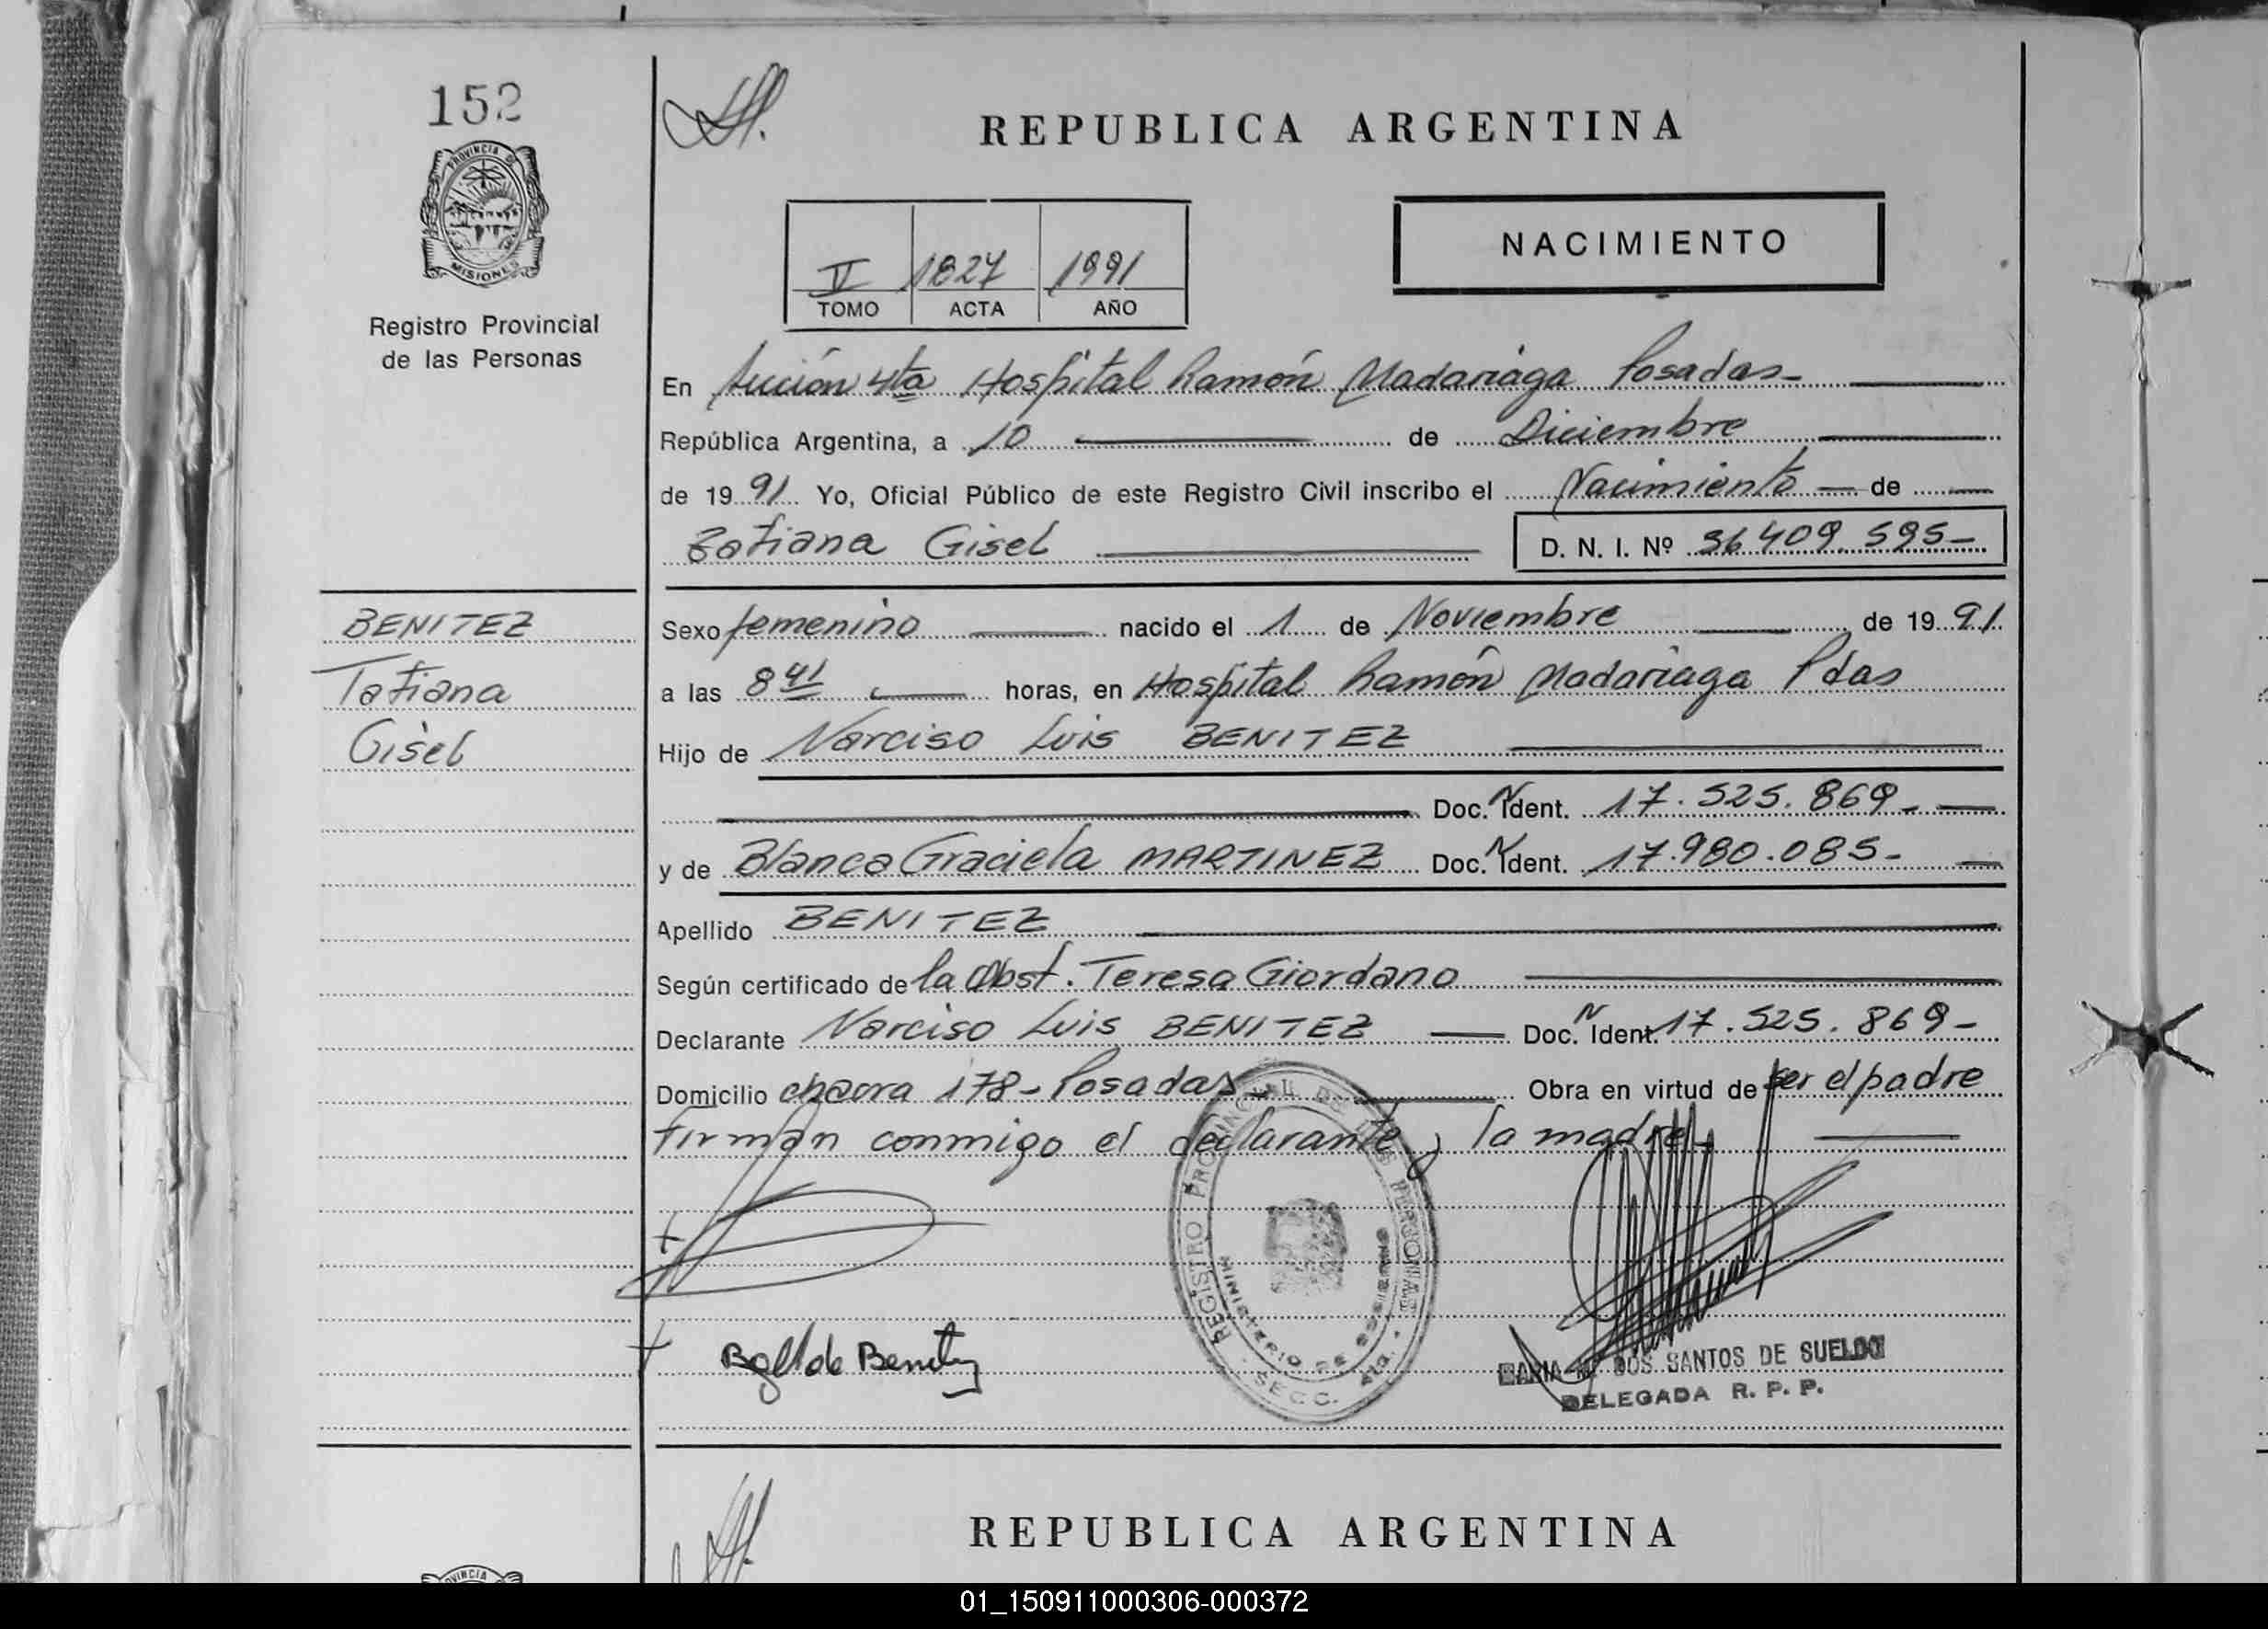 152
PROVINCIA DE
MISIONES
Registro Provincial
de las Personas
REPUBLICA ARGENTINA
V 1827 1991
TOMO ACTA AÑO
NACIMIENTO
En Sección 4ta Hospital Ramón Madariaga Posadas-
República Argentina, a 10 de Diciembre
de 19 91 Yo, Oficial Público de este Registro Civil inscribo el Nacimiento de
Tatiana Gisel D. N. I. Nº 36 409. 595-
BENITEZ
Tatiana
Gisel
Sexo femenino nacido el 1 de Noviembre de 19 91
a las 8 41 horas, en Hospital Ramón Madariaga Pdas
Hijo de Narciso Luis BENITEZ
Doc. N Ident. 17. 525. 869-
y de Blanca Graciela MARTINEZ Doc. N Ident. 17.980.085-
Apellido BENITEZ
Según certificado de la Obst. Teresa Giordano
Declarante Narciso Luis BENITEZ Doc. N Ident. 17. 525. 869-
Domicilio chacra 178- Posadas Obra en virtud de ser el padre
firman conmigo el declarante y la madre-
REGISTRO PROVINCIAL DE LAS PERSONAS
MINISTERIO DE GOBIERNO
SECC. 4ta.
de Benitez
DOS SANTOS DE SUELDO
DELEGADA R. P. P.
REPUBLICA ARGENTINA
01_150911000306-000372